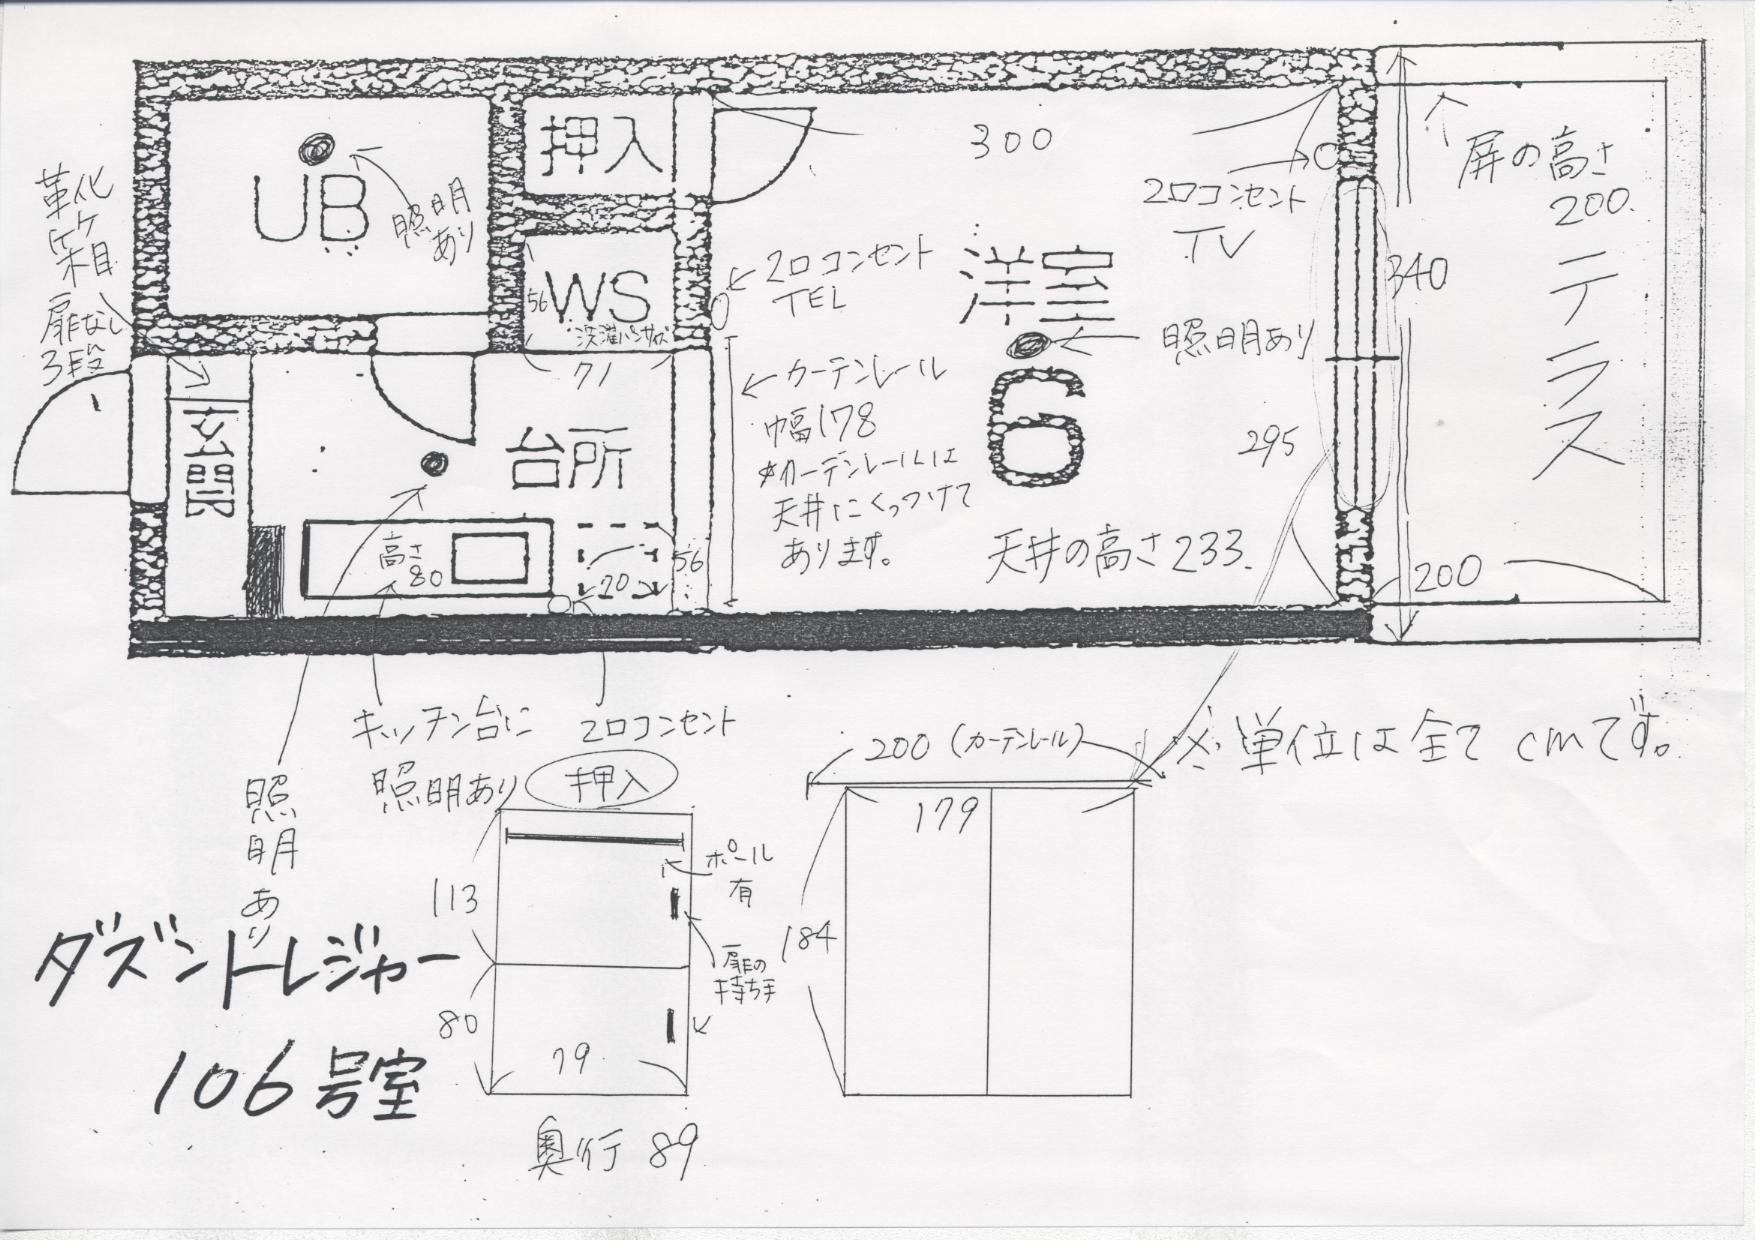 靴箱
扉なし
3段
UB
照明
あり
押入
WS
56
洗濯パンサイズ
71
玄関
台所
高さ
80
70
56
300
2口コンセント
TV
2口コンセント
TEL
洋室
6
照明あり
カーテンレール
幅178
*カーテンレールは
天井にくっつけて
あります。
295
天井の高さ233.
340
塀の高さ
200.
テラス
200
キッチン台に
照明あり
2口コンセント
照明あり
押入
ポール
有
113
扉の
持ち手
80
79
奥行 89
200(カーテンレール)
179
184
※単位は全てcmです。
ダズントレジャー
106号室